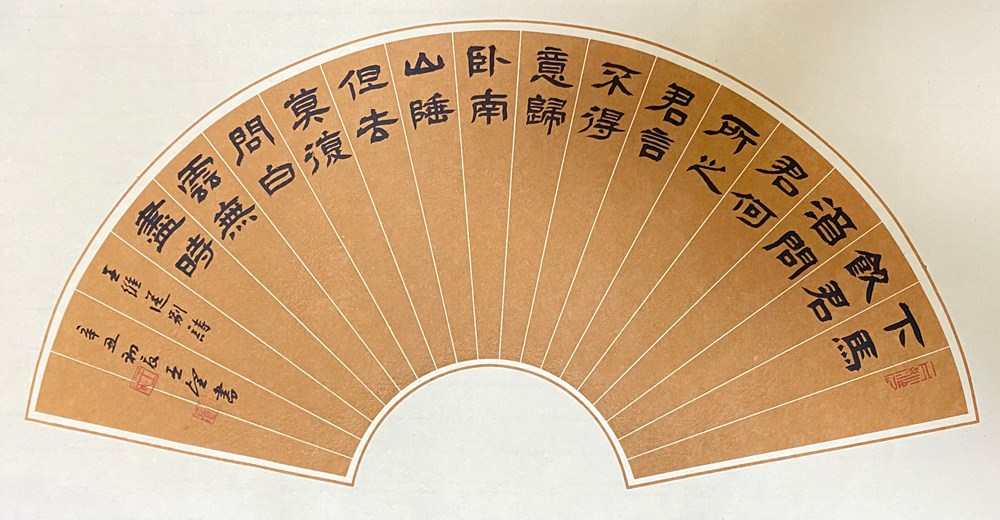 下馬
飲君
酒問
君何
所之
君言
不得
意歸
卧南
山陲
但去
莫復
問白
雲無
盡時
王維送别詩
辛丑初夏王書